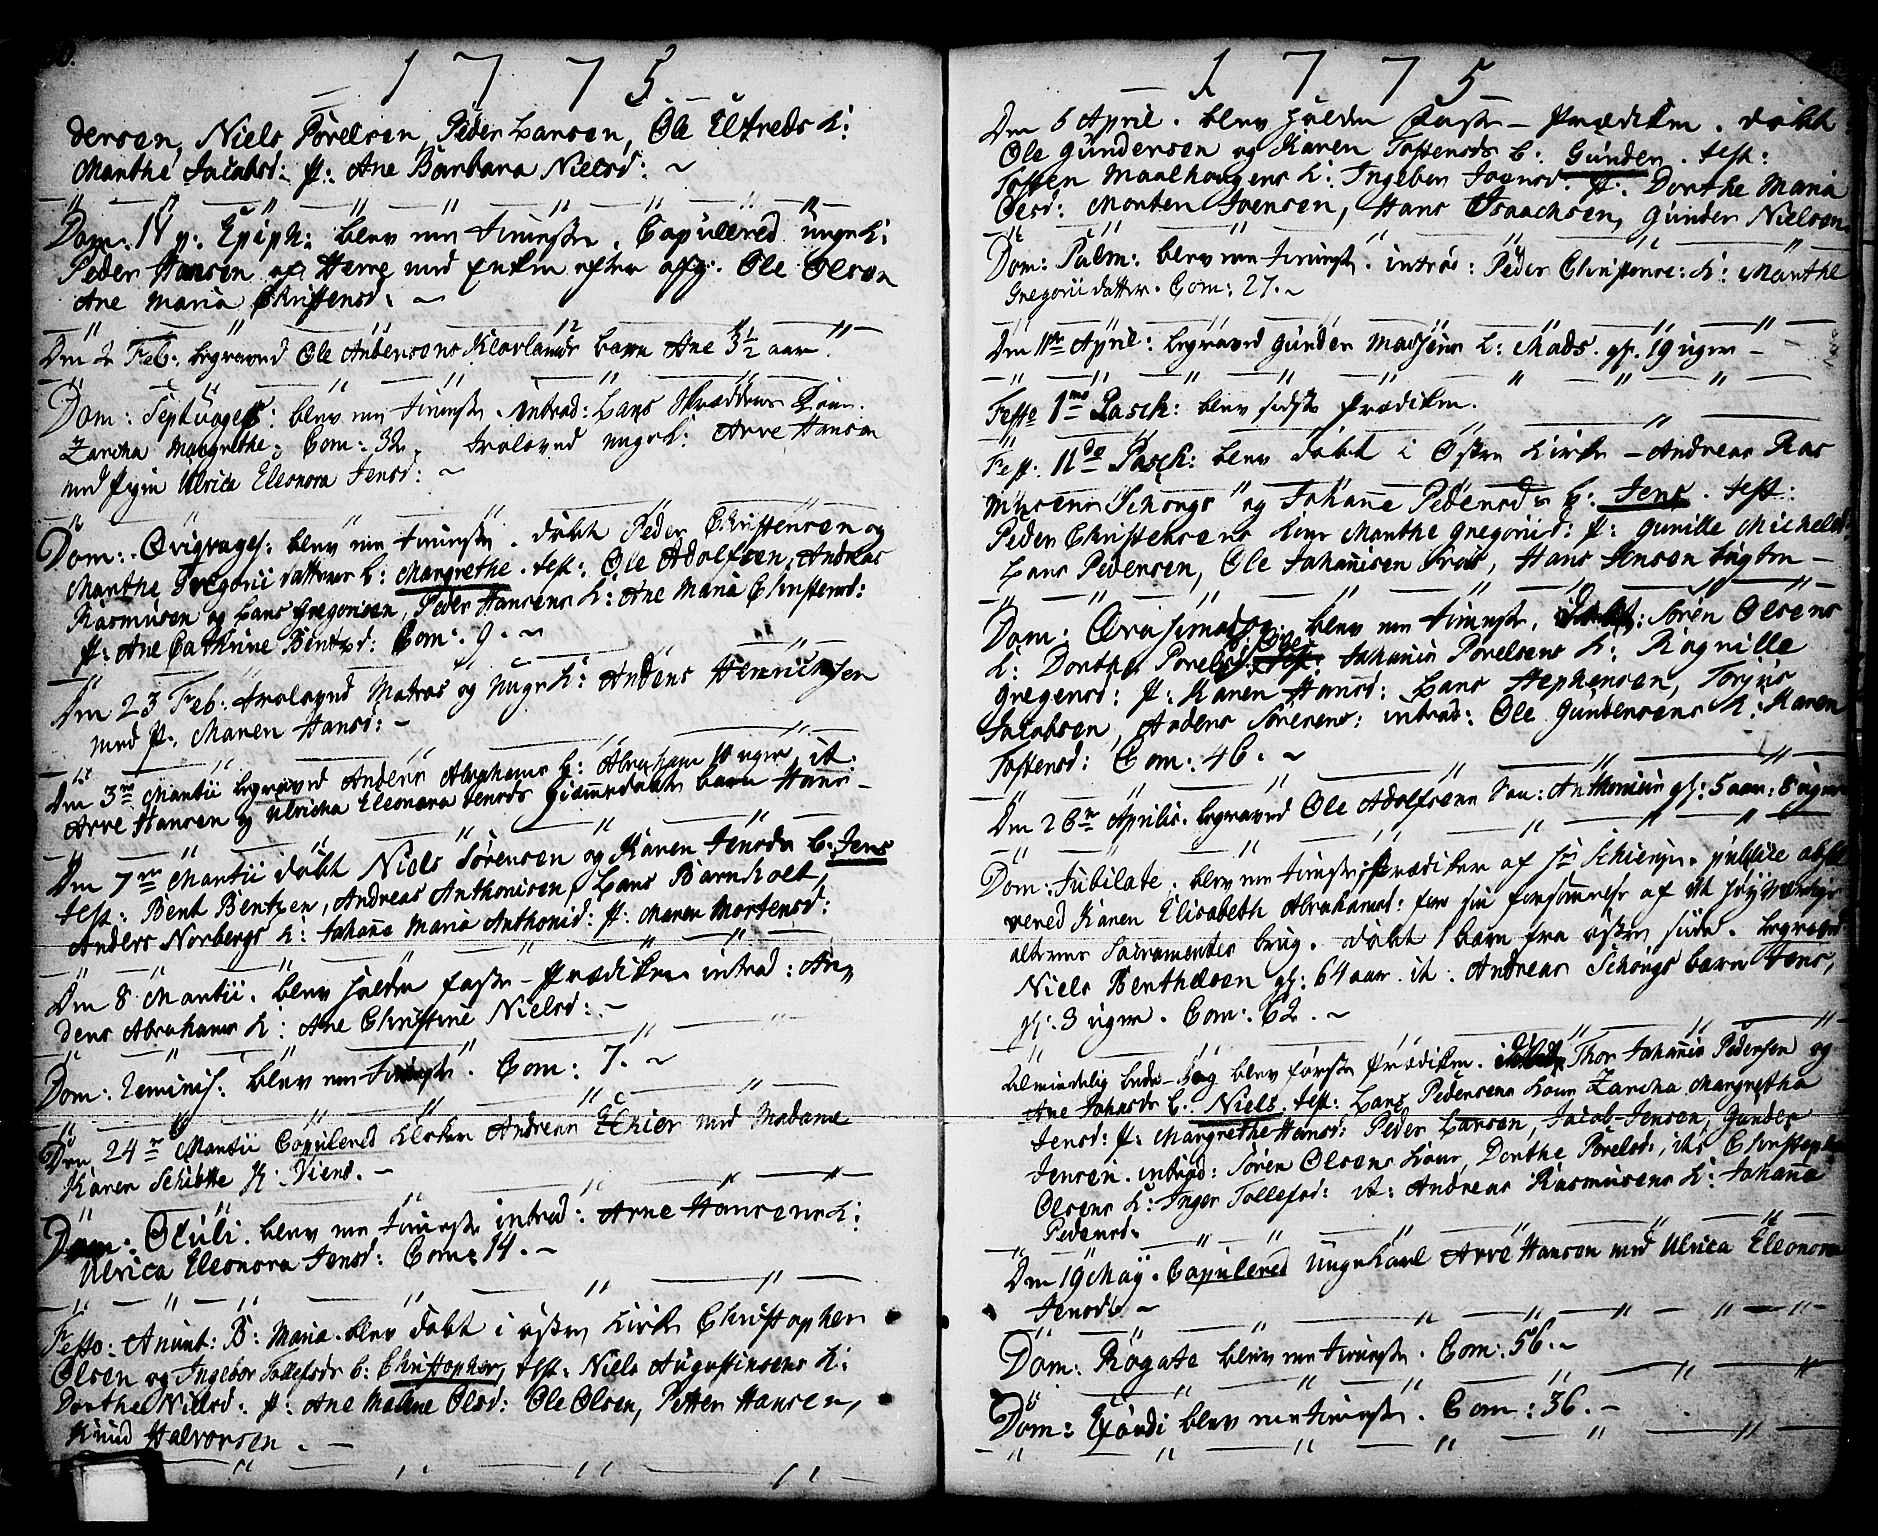 1775
dersen, Niels Pørelsen, Peder Larsen, Ole Elfreds k:
Marthe Jacobsd: p: Ane Barbara Nielsd: ~
Dom: IV p: Epiph: blev messe tieniste. Copulered ungk:
Peder Hansen af Herre med Enken efter afg: Ole Olsen
Ane Maria Christensd: ~
Den 2 Feb: begraved Ole Andersens Klovlands barn Ane 3½ aar.
Dom: Septuages: blev messe tieniste. introd: Lars Skrædders kone
Zarcha Margrethe. Com: 32. troloved ungk: Arve Hansen
med pigen Ulrica Eleonora Jensd: ~
Dom: Qvinqvages: blev messe tieniste. døbt Peder Christensen og
Marthe Gregorii datters b: Margrethe. test: Ole Adolfsen, Andreas
Rasmusen og Lars Gregorisen, Peder Hansens k: Ane Maria Christensd:
p: Ane Cathrine Bentsd: Com: 9. ~
Den 23 Feb: troloved Matros og ungk: Anders Henrichsen
med p: Maren Hansd: -
Den 3die Martii begraved Anders Abrahams b: Abraham uger it:
Arve Hansen og Ulricha Eleonora Jensds hiemmedøbte barn Hans -
Den 7de Martii døbt Niels Sørensen og Karen Jensds b: Jens
test: Bent Bentzen, Andreas Anthonisen, Lars Barnholt,
Anders Norbergs k: Johane Maria Anthonid: p: Maren Mortensd:
Den 8 Martii. blev holden faste-Prædiken introd: An„
ders Abrahams k: Ane Christine Nielsd: -
Dom: Reminis: blev messe tieniste. Com: 7. ~
Den 24de Martii Copulered Andreas med Madame
Karen Schiøtte -
Dom: Oculi. blev messe tieniste introd: Arne Hansens k:
Ulrica Eleonora Jensd: Com: 14. -
Festo: Anunt: B: Maria. blev døbt i østre kirke Christopher
Olsen og Ingebor Tollefsds b: Christopher, test: Niels Augustinsens k:
Dorthe Nielsd: p: Ane Malene Olsd: Ole Olsen, Petter Hansen,
Knud Halvorsen. -
1775
Den 5 April. blev holden faste-Prædiken. døbt
Ole Gundersen og Karen Tostensds b: Gunder. test:
Tosten Maalhougens k: Ingebor p: Dorthe Maria
Olsd: Morten Ivensen, Hans Isaachsen, Gunder Nielsen
Dom: Palm: blev messe tieniste. introd: Peder Christens: k: Marthe
Gregorii datter. Com: 27. ~
Den 11te April: begraved Gunder Madsens b: Mads. gl. 19 uger -
Festo 1mo Pasch: blev sidste Prædiken.
Fest: IIdo Pasch: blev døbt i Østre kirke - Andreas Ras
musens Schougs og Johane Pedersds b: Jens. test:
Peder Christensens kone Marthe Gregorid: p: Gunille Michelsd:
Lars Pedersen, Ole Johanisen Hans Jensen -
Dom: Qvasimodog: blev messe tieniste. døbt: Søren Olsens
k: Dorthe Pørelsd: Johanis Pørelsens k: Ragnille
Gregersd: p: Karen Hansd: Lars Stephensen, Torjus
Jacobsen, Anders Sørensens: introd: Ole Gundersens k: Karen
Tostensd: Com: 46. ~
Den 26de Aprilis. begraved Ole Adolfsens Søn: Anthonius gl: 5 aar: 8 uger
Dom: Jubilate. blev messe tieniste Prædiken af Hr publice absol
vered Karen Elisabeth Abrahamsd: for sin forsømmelse af det høyværdige
alterens Sacramentes brug. døbt 1 barn fra østre side. begraved
Niels Benthelsen gl: 64 aar. it: Andreas Schougs barn Jens,
gl: 3 uger. Com: 62. ~
Almindelig bede-dag blev første Prædiken. døbt Thor Johanis Pedersen og
Ane Johnsds b: Niels. test: Lars Pedersens kone Zarcha Margretha
Jensd: p: Margrethe Hansd: Peder Larsen, Jacob Jensen, Gunder
Jensen. introd: Søren Olsens kone Dorthe Pørelsd:, it: Christopher
Olsens k: Inger Tollefsd: it: Andreas Rasmusens k: Johana
Pedersd:
Den 19 Maij. Copulered ungekarl Arve Hansen med Ulrica Eleonora
Jensdtr ~
Dom: Rogate blev messe tieniste. Com: 56. ~
Dom: Exaudi blev messe tieniste. Com: 36. -